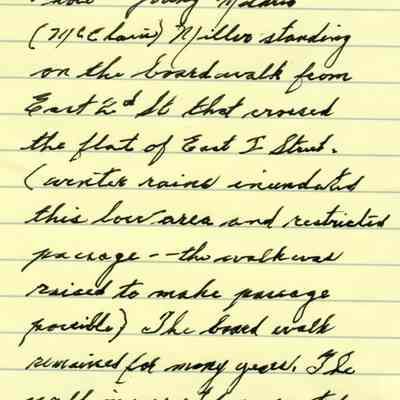 young
(McClain) Miller standing
on the boardwalk from
East 2d St that crossed
the flat of East I Street.
(winter rains inundated
this low area and restricted
passage -- the walk was
raised to make passage
possible) The board walk
remained for many years. The